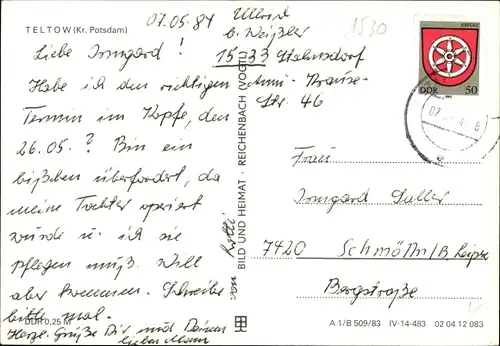 TELTOW (Kr. Potsdam)
07.05.84
b. Weißler
1533 Stahnsdorf
Str. 46
1530
Liebe Irmgard!
Habe ich den richtigen
Termin im Kopfe, den
26.05.? Bin ein
bißchen überfordert, da
meine Tochter operiert
wurde u. ich sie
pflegen muß. Will
aber kommen. Schreibe
bitte mal.
Herzl. Grüße Dir und Deinem
lieben Mann
von Lotti
DDR 0,25 M
BILD UND HEIMAT · REICHENBACH (VOGTL)
DDR 50
Frau
Irmgard Saller
7420 Schmölln/B. Leipzig
Bergstraße
A 1/B 509/83 IV-14-483 02 04 12 083